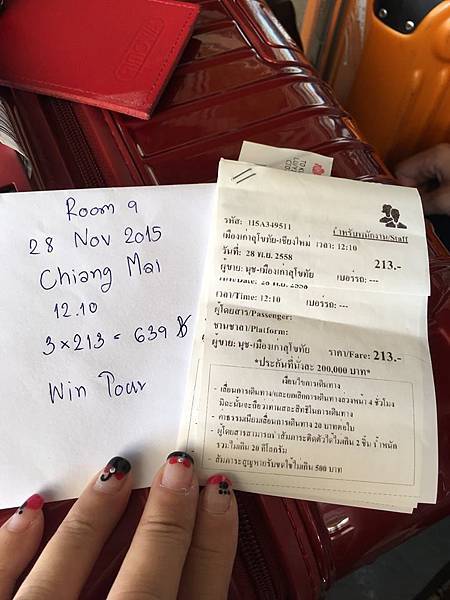 Room 9
28 Nov 2015
Chiang Mai
12.10
3 x 213 = 639 ฿
Win Tour
รหัส: 115A349511
สำหรับพนักงาน/Staff
เมืองเก่าสุโขทัย-เชียงใหม่ เวลา: 12:10
วันที่: 28 พ.ย. 2558
213.-
ผู้ขาย: นุช-เมืองเก่าสุโขทัย เบอร์รถ: ---
เวลา/Time: 12:10 เบอร์รถ: ---
ผู้โดยสาร/Passenger:
ชานชาลา/Platform:
ผู้ขาย: นุช-เมืองเก่าสุโขทัย ราคา/Fare: 213.-
*ประกันที่นั่งละ 200,000 บาท*
เงื่อนไขการเดินทาง
- เลื่อนการเดินทาง/และยกเลิกการเดินทางล่วงหน้า 4 ชั่วโมง
มิฉะนั้นจะถือว่าท่านสละสิทธิในการเดินทาง
- ค่าธรรมเนียมเลื่อนการเดินทาง 20 บาทต่อใบ
- ผู้โดยสารสามารถนำสัมภาระติดตัวได้ไม่เกิน 2 ชิ้น น้ำหนัก
รวมไม่เกิน 20 กิโลกรัม
- สัมภาระสูญหายรับชดใช้ไม่เกิน 500 บาท